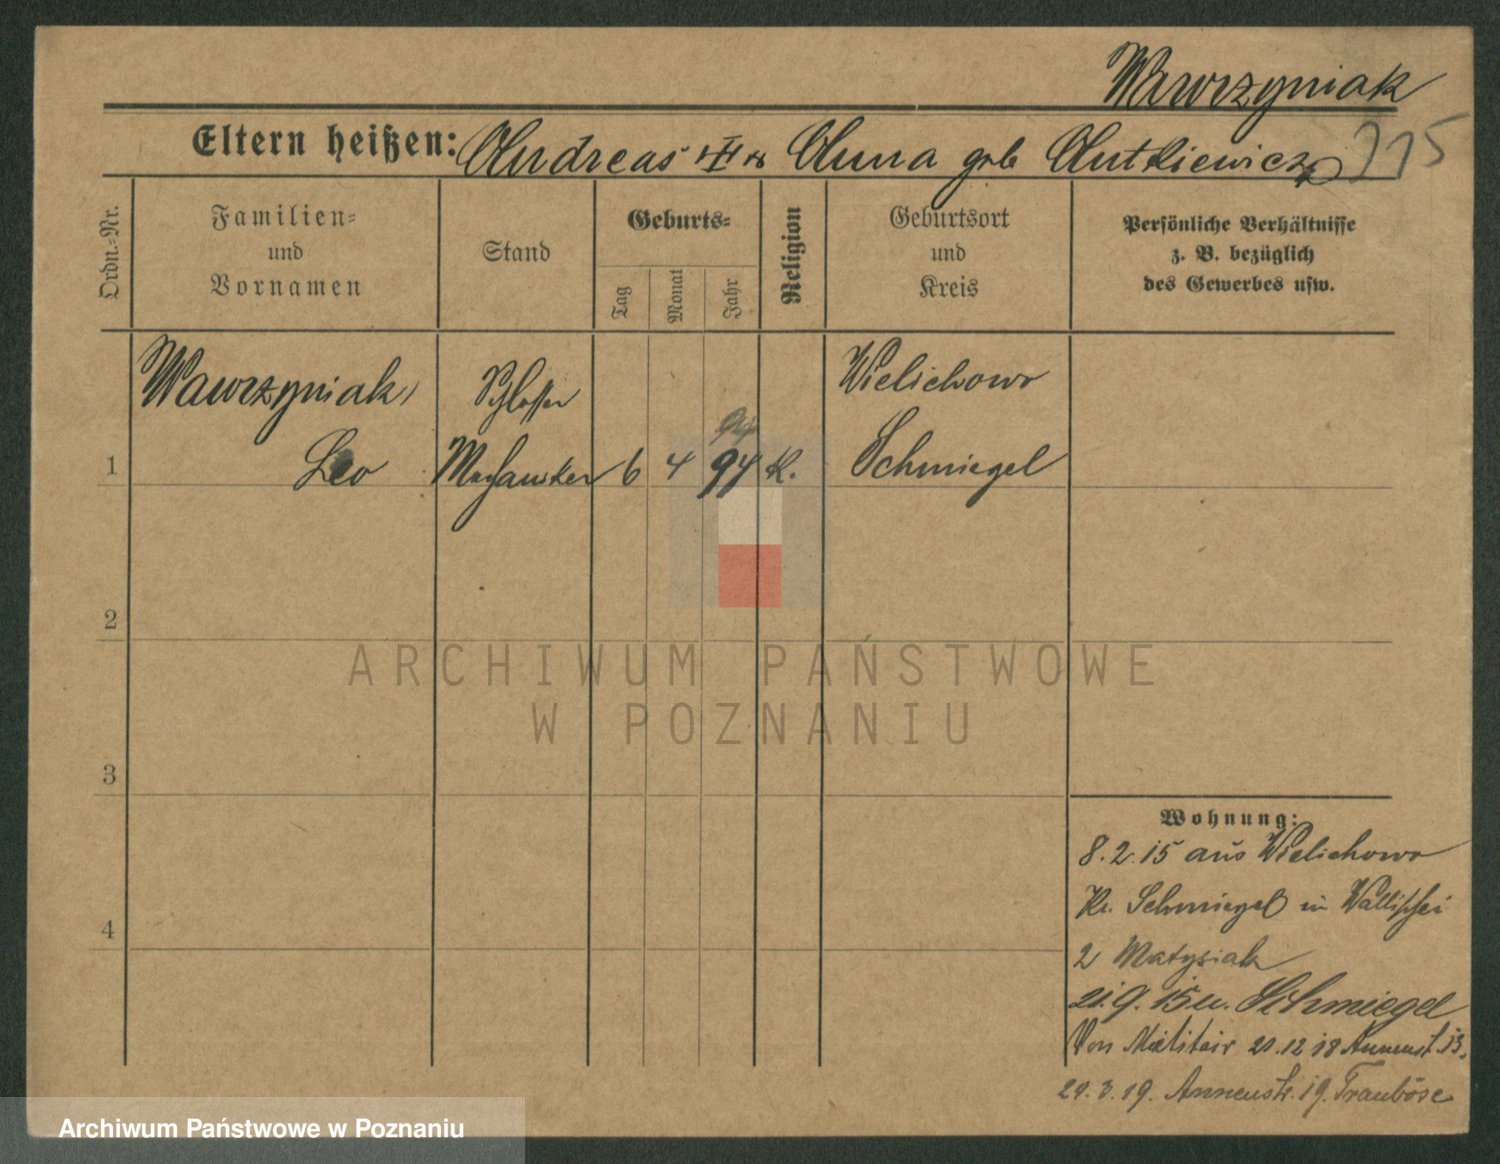 Wawrzyniak
215
Eltern heißen: Andreas u. Anna geb Antkiewicz
Ordn.=Nr.
Familien=
und
Vornamen
Stand
Geburts=
Tag
Monat
Jahr
Religion
Geburtsort
und
Kreis
Persönliche Verhältnisse
z. B. bezüglich
des Gewerbes usw.
Wawrzyniak,
Schlosser
Wielichowo
94
1
Leo
Mechaniker
6
4
94
K.
Schmiegel
2
ARCHIWUM PAŃSTWOWE
W POZNANIU
3
Wohnung:
8.2.15 aus Wielichowo
Kr. Schmiegel in Wallischei
4
2 Matysiak
21.9.15 n. Schmiegel
Von Militair 21.12 18 Annenst 13.
24.3.19. Annenstr. 19.
Archiwum Państwowe w Poznaniu